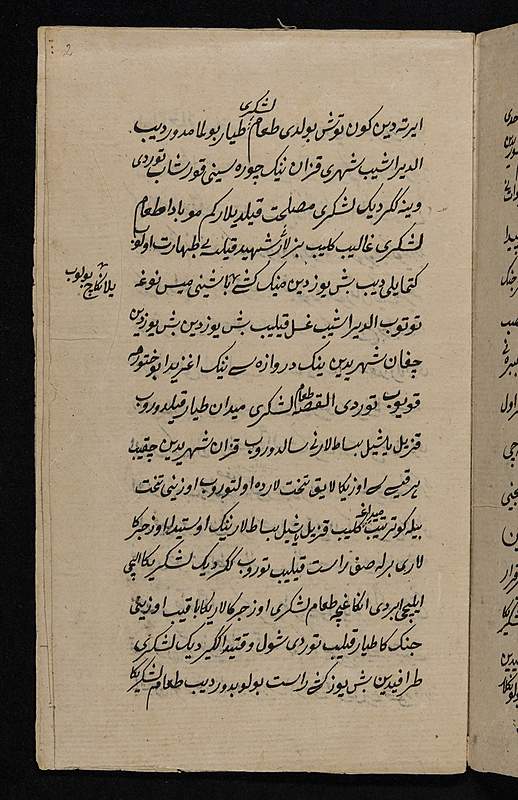 2
لشکری
ایرته دین کون توشی بولدی طعام طیار بولما مدور دیب
الدیراشیب شهری قزان نینک چوره سینی قورشاب توردی
وینه ککردیک لشکری مصلحت قیلدیلار کم موبادا طعام
لشکری غالیب کلیب بیزلار شهید قیلسه بی طهارت اولوب
کتمایلی دیب بش یوز دین مینک کشی باشینی میس نوغه
توتوب الدیراشیب غسل قیلیب بش یوزدین بش یوزدین
جفان شهریدین ینک دروازه سی نینک اغزیدا
قویوب توردی القصه طعام لشکری میدان طیار قیلدوروب
قزیل یاشیل بساطلارنی سالدوروب قزان شهریدین چقیب
هر قیسی اوزیکا لایق تخت لارده اولتوروب اوزینی تخت
بیله کوتریب میدانغه کلیب قزیل یاشیل بساطلار نینک اوستیدا اوز جرکا
لاری برله صف راست قیلیب توروب ککردیک لشکریکا ایلچی
ایلچی ایبردی انکاغچه طعام لشکری اوز جرکالاریکا باقیب اوزینی
جنک کا طیار قیلیب توردی شول وقتیدا ککردیک لشکری
طرافیدین بش یوز کشی راست بولوبدور دیب طعام لشکریکا
یلانکاج بولوب